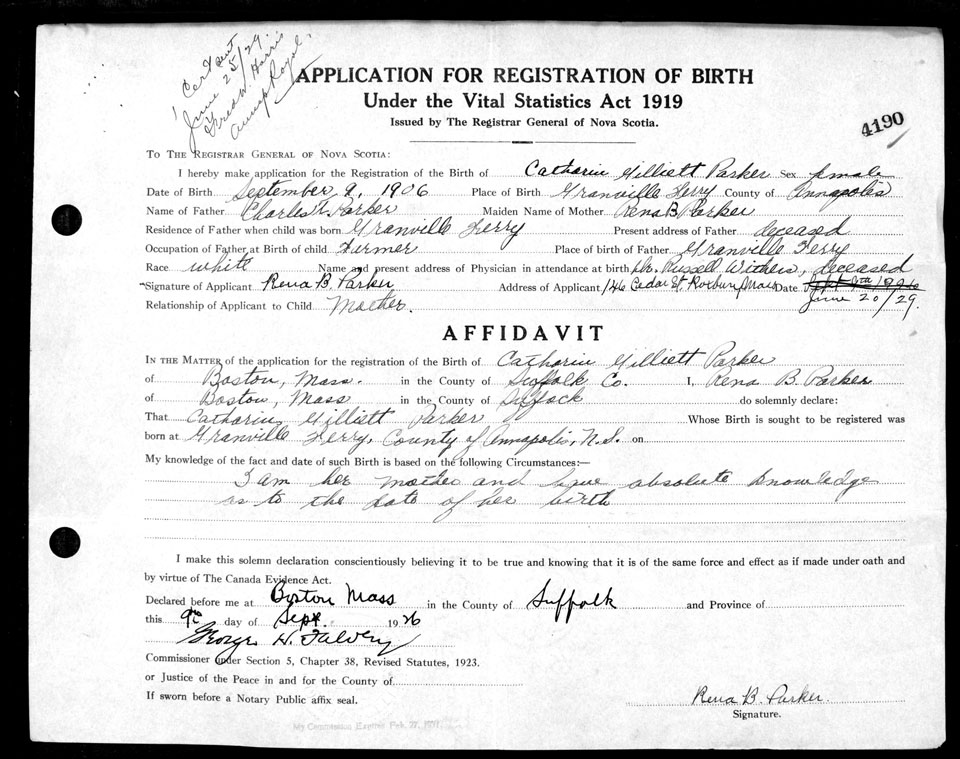 1 Cert sent
June 25/29.
Fred W. Harris
Annap. Royal.
APPLICATION FOR REGISTRATION OF BIRTH
Under the Vital Statistics Act 1919
Issued by The Registrar General of Nova Scotia.
4190
TO THE REGISTRAR GENERAL OF NOVA SCOTIA:
I hereby make application for the Registration of the Birth of Catharin Gilliett Parker Sex female
Date of Birth September 9, 1906 Place of Birth Granville Ferry County of Annapolis
Name of Father Charles Parker Maiden Name of Mother Rena B Parker
Residence of Father when child was born Granville Ferry Present address of Father deceased
Occupation of Father at Birth of child Farmer Place of birth of Father Granville Ferry
Race white Name and present address of Physician in attendance at birth Dr. Russell Withers, deceased
Signature of Applicant Rena B. Parker Address of Applicant 146 Cedar St. Roxbury Mass Date Sept 9th 1926
June 20/29.
Relationship of Applicant to Child Mother.
AFFIDAVIT
IN THE MATTER of the application for the registration of the Birth of Catharin Gilliett Parker
of Boston, Mass. in the County of Suffolk Co. I, Rena B. Parker
of Boston, Mass in the County of Suffock do solemnly declare:
That Catharin Gilliett Parker Whose Birth is sought to be registered was
born at Granville Ferry, County of Annapolis, N.S. on
My knowledge of the fact and date of such Birth is based on the following Circumstances:—
I am her mother and have absolute knowledge
as to the date of her birth
I make this solemn declaration conscientiously believing it to be true and knowing that it is of the same force and effect as if made under oath and
by virtue of The Canada Evidence Act.
Declared before me at Boston Mass in the County of Suffolk and Province of
this 9th day of Sept. 1926
George H. Falvey
Commissioner under Section 5, Chapter 38, Revised Statutes, 1923.
or Justice of the Peace in and for the County of
If sworn before a Notary Public affix seal.
Rena B. Parker.
Signature.
My Commission Expires Feb. 27, 1931.